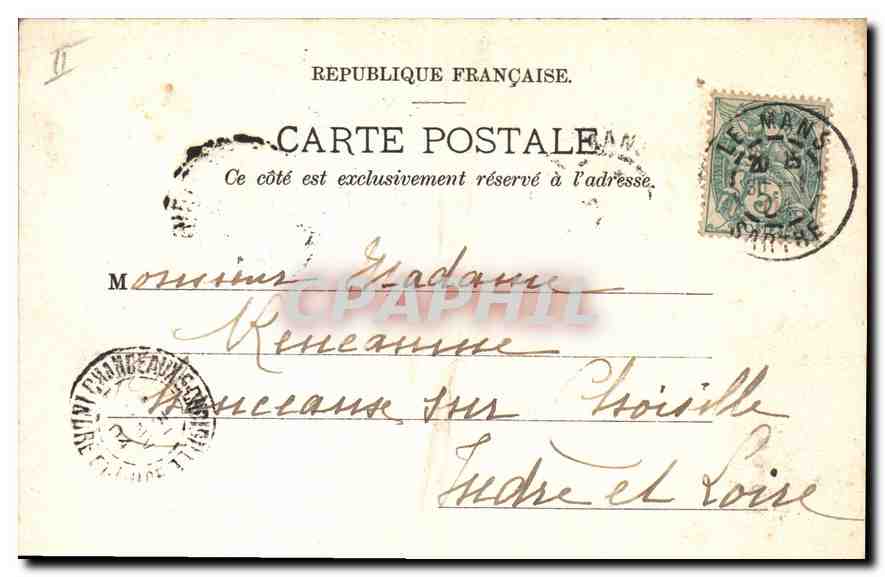 II
REPUBLIQUE FRANÇAISE.
CARTE POSTALE
Ce côté est exclusivement réservé à l'adresse.
LE MANS
SARTHE
5c
MANS
Monsieur Madame
CPAPHIL
sur Choisille
Indre et Loire
CHANCEAUX-S-CHOISILLE
INDRE ET LOIRE
04